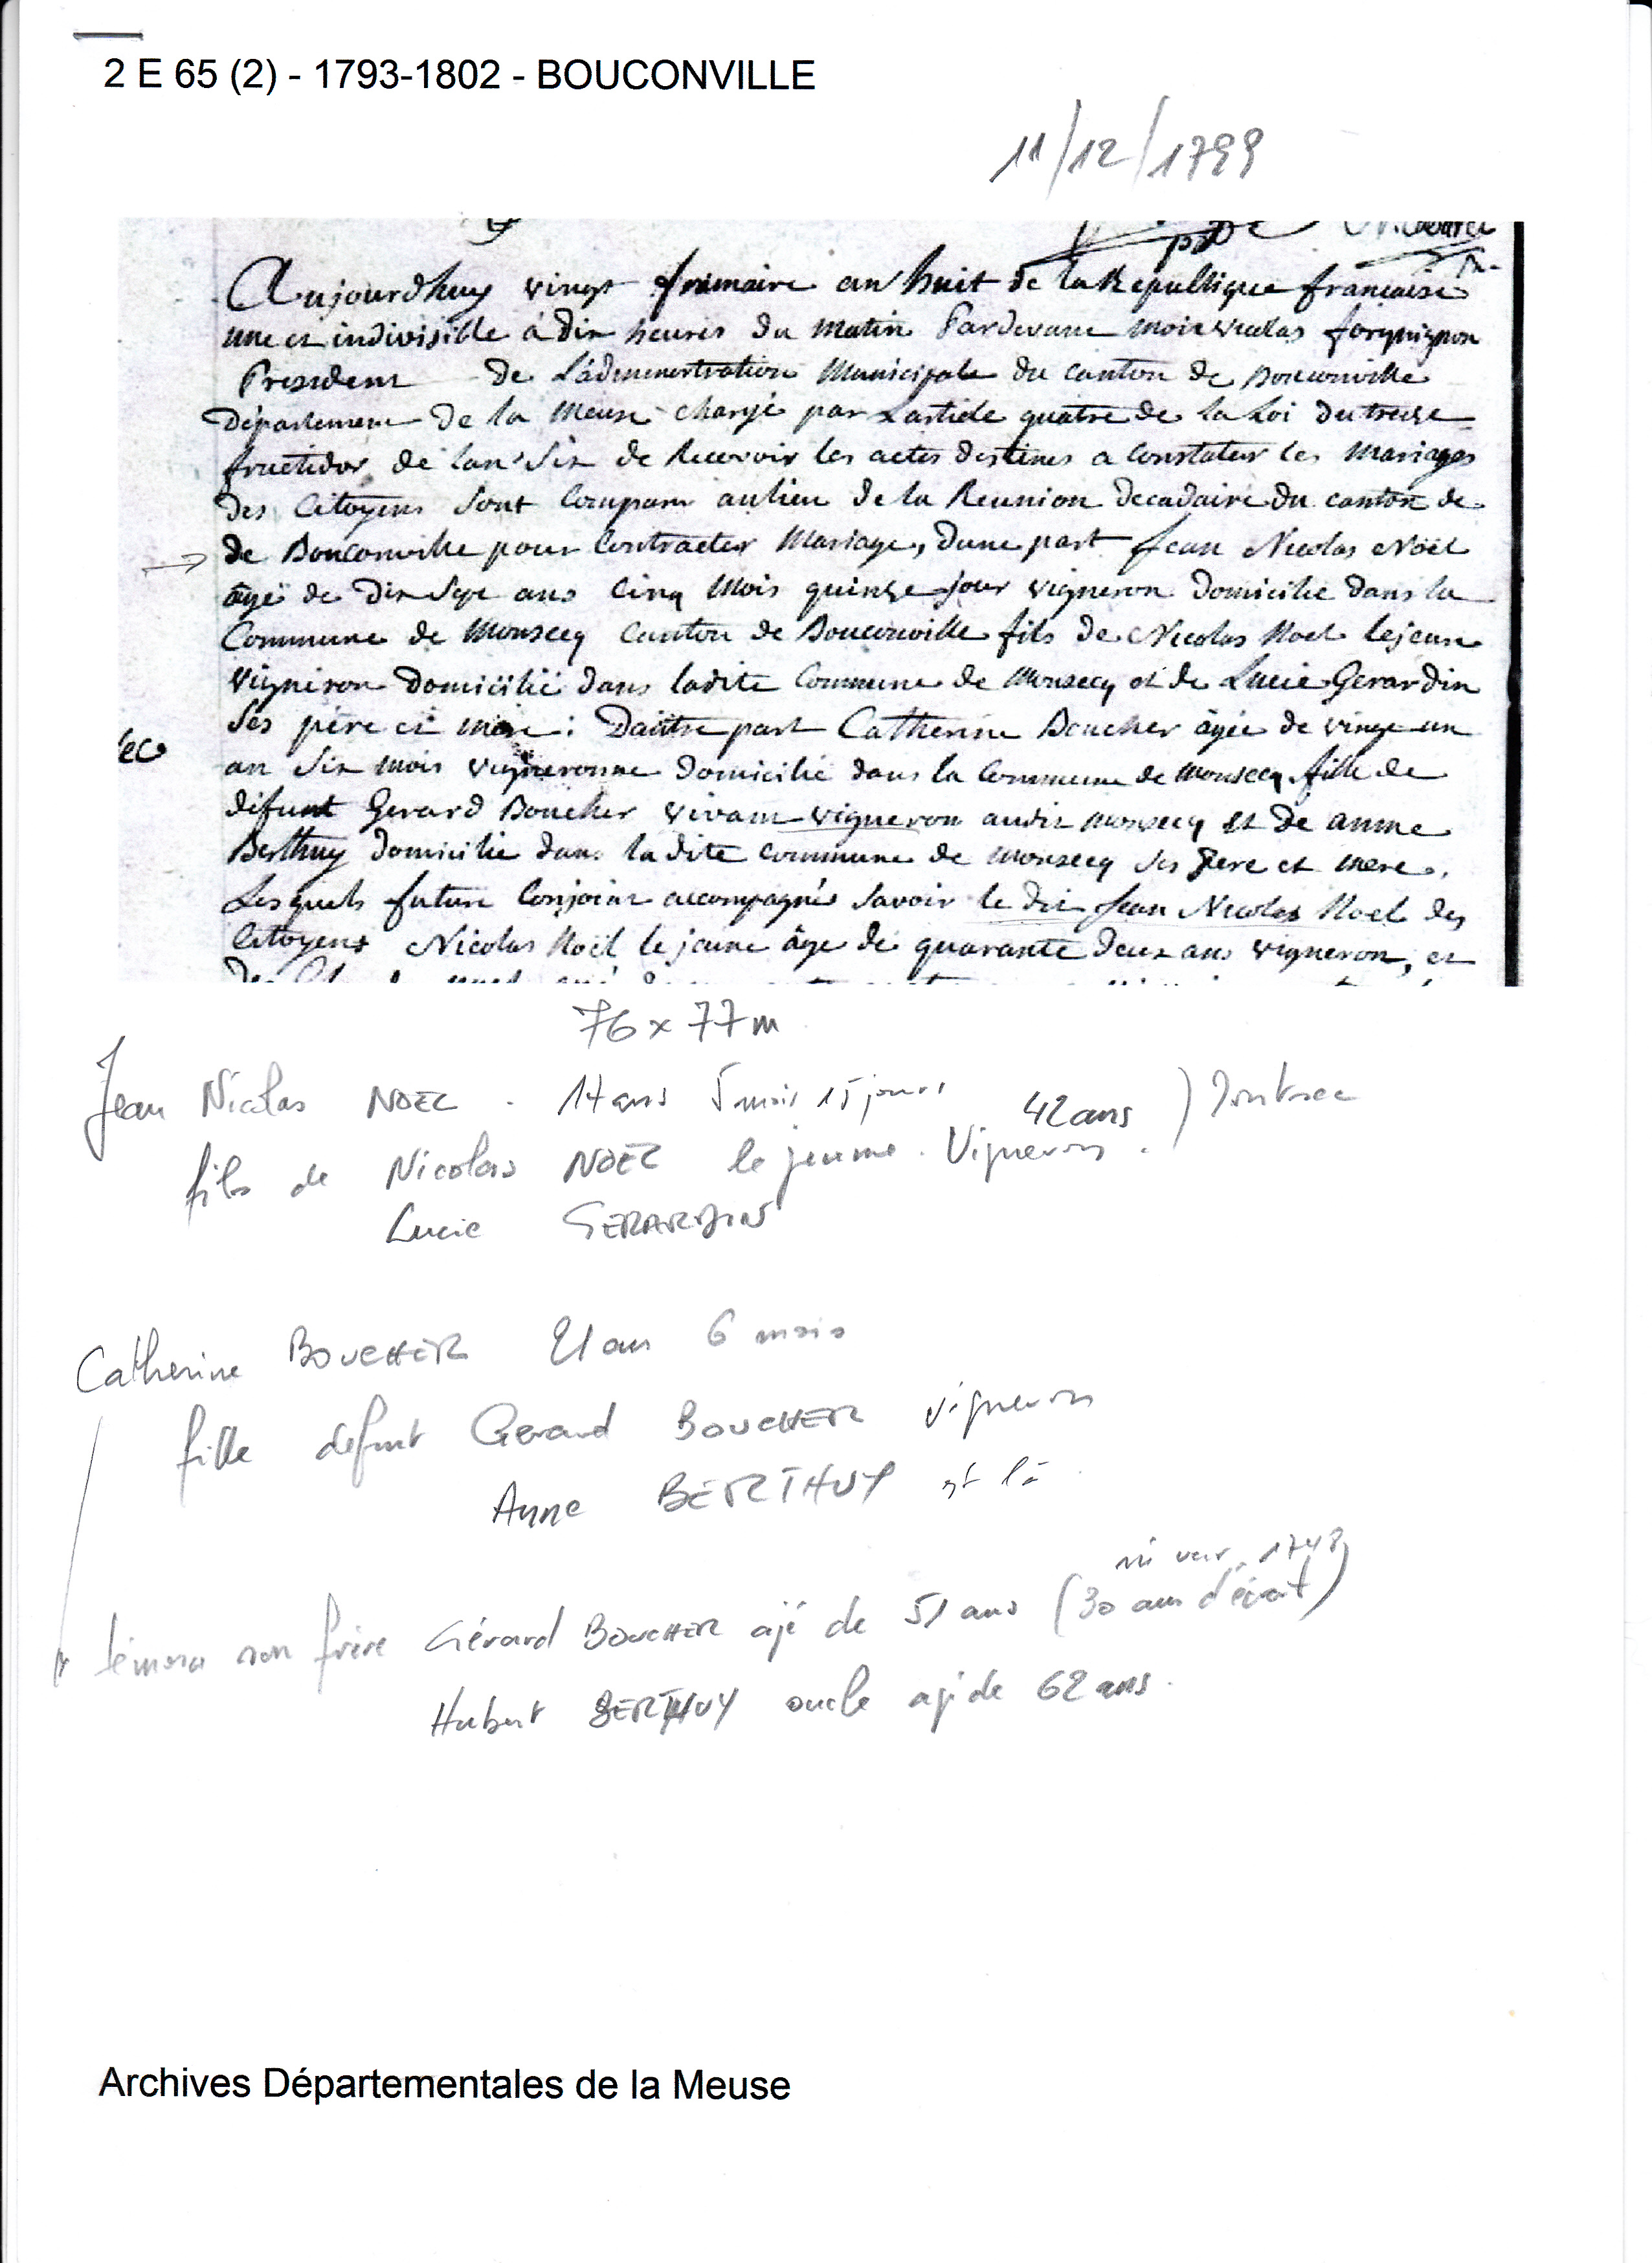 2 E 65 (2) - 1793-1802 - BOUCONVILLE
11/12/1799
Aujourdhuy vingt frimaire an huit de la Republique francaise
une et indivisible à dix heures du matin Pardevant moi Nicolas forquignon
President de Ladministration Municipale du canton de Bouconville
Département de la Meuse chargé par Larticle quatre de la Loi du treize
fructidor de lan Six de Recevoir les actes destines a Constater les Mariages
des Citoyens Sont Comparu au lieu de la Reunion decadaire du canton de
de Bouconville pour Contracter Mariage, dune part Jean Nicolas Noël
âgé de Dix Sept ans Cinq Mois quinze jour vigneron Domicilie dans la
Commune de Monsecq Canton de Bouconville fils de Nicolas Noel lejeune
Vigneron domicilié dans ladite Commune de Monsecq et de Lucie Gerardin
Ses père et mère : Dautre part Catherine Boucher âgée de vingt un
sec
an Six mois vigneronne domicilié dans la Commune de Monsecq fille de
difunt Gerard Boucher vivant vigneron audit Monsecq et de anne
Berthuy domicilie dans ladite commune de Monsecq Ses Pere et mere.
Lesquels future Conjoint accompagnés Savoir le dit Jean Nicolas Noel des
Citoyens Nicolas Noël le jeune âge de quarante deux ans vigneron, et
76 x 77 m
Jean Nicolas NOEL . 17 ans 5 mois 15 jours
42 ans ) Montsec
fils de Nicolas NOËL le jeune . Vigneron .
Lucie GERARDIN
Catherine BOUCHER 21 an 6 mois
fille defunt Gerard BOUCHER vigneron
Anne BERTHUY est là .
né vers 1748
témoin son frère Gérard BOUCHER agé de 51 ans (30 ans d'écart)
Hubert BERTHUY oncle agé de 62 ans.
Archives Départementales de la Meuse